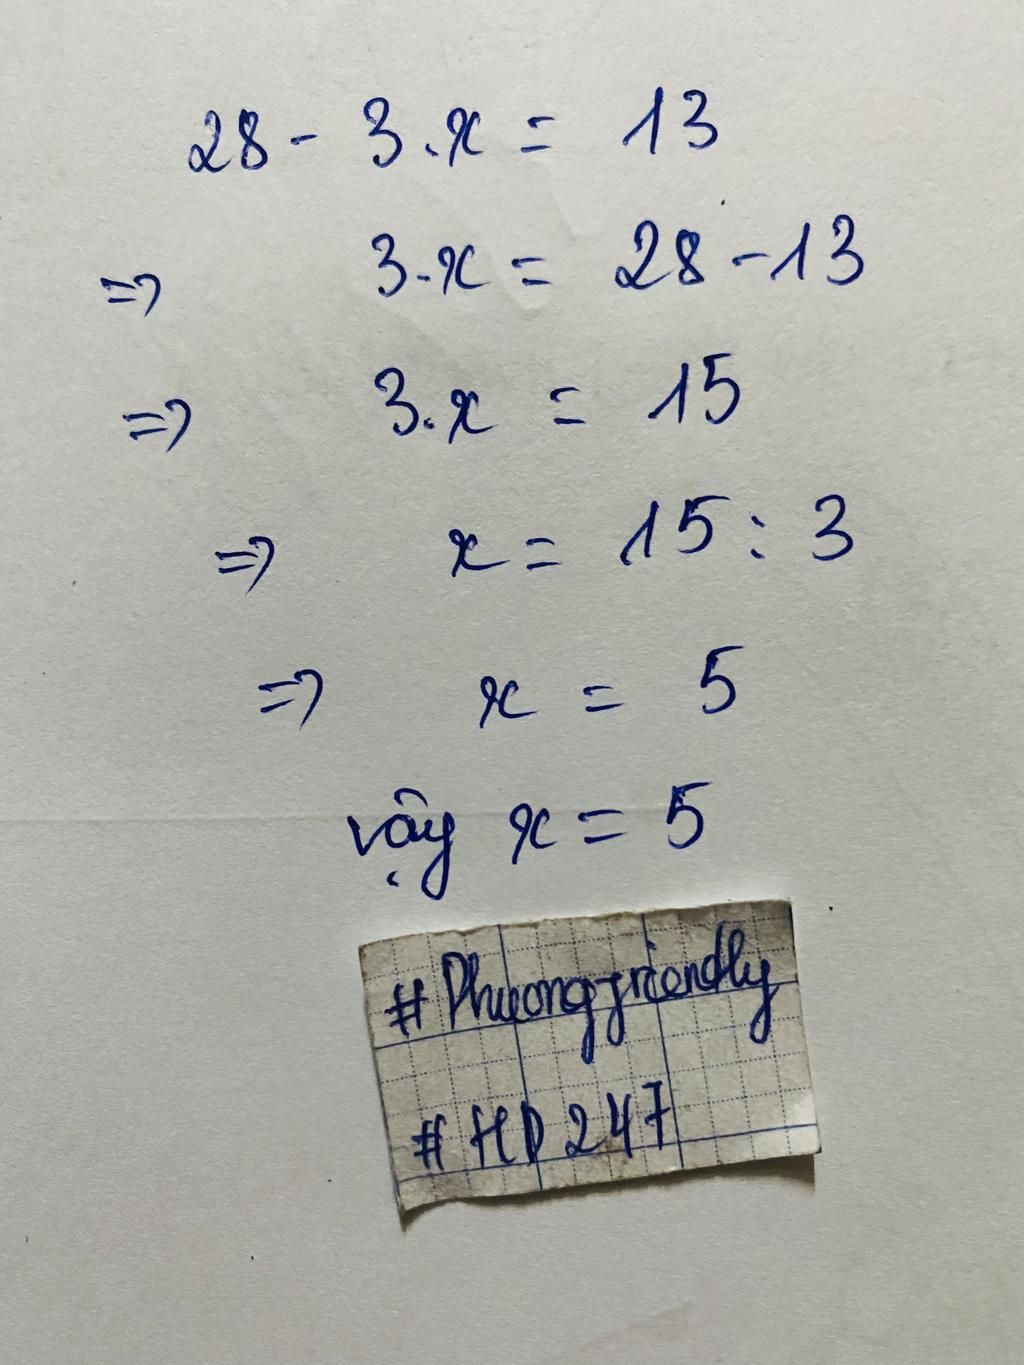 28 - 3.x = 13
=> 3.x = 28 - 13
=> 3.x = 15
=> x = 15 : 3
=> x = 5
vậy x = 5
#Phuongfriendly
#HD247